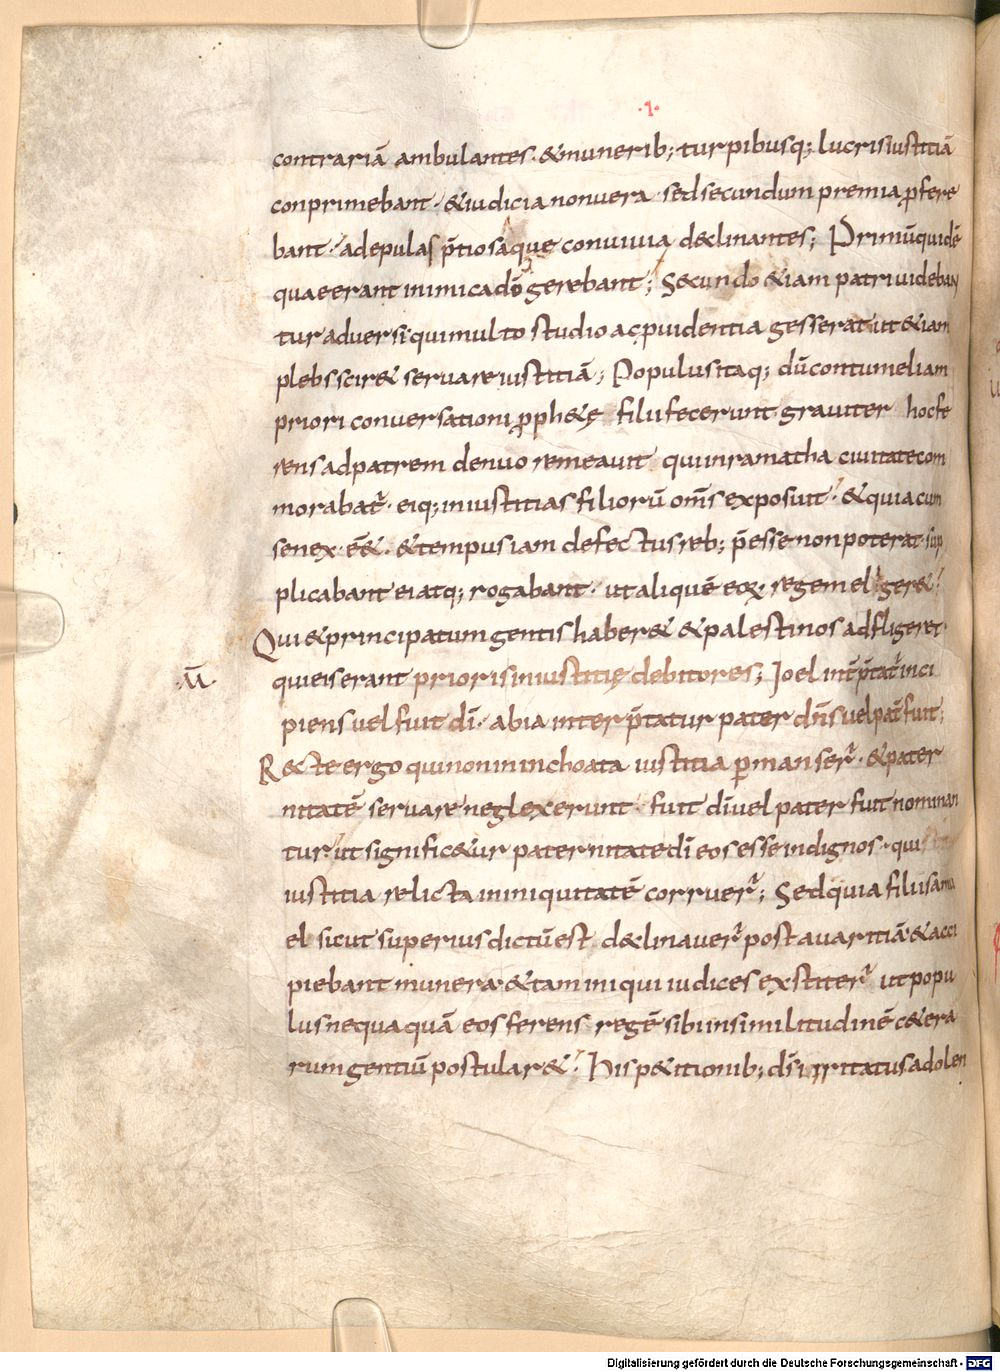 ·1·
contrariā ambulantes· &munerib; turpibusq; lucrisiustitiā
conprimebant· &iudicianonuera· sedsecundum premia ꝓfere
bant· adepulas p̄tiosaque conuiuia declinantes; Primūquidē
quaeerant inimicadō gerebant; Secundo &iam patri uideban
tur aduersi quimulto studio ac ꝓuidentia gesserat ut &iam
plebs scir& seruare iustitiā; Populusitaq; dū contumeliam
priori conuersationi ꝓph&ę filii fecerunt grauiter hocfe
rens adpatrem denuo remeauit quiinramatha ciuitatecom
morabat̄· eiq; iniustitias filiorū om̄s exposuit· &quia cum
senex· ēe&· &tempus iam defectusreb; p̄esse nonpoterat· sup
plicabant ei atq; rogabant· utaliquē eoꝝ regem eligere&
Qui &principatum gentis haber& &palestinos adfligeret
·ū· quieiserant priorisiniustitię debitores; Joel int̄p̄tat̄ inci
piens uel fuit dī· abia inter p̄tatur pater dn̄s uel pat̄ fuit;
Recte ergo quinonininchoata iustitia ꝑmanser̄· &pater
nitatē seruare neglexerunt· fuit dī uel pater fuit nominan
tur· ut signific&ur paternitate dī eos esse indignos· qui
iustitia relicta ininiquitatē corruer̄; Sedquia filiisamu
el sicut superius dictū est declinauer̄ post auaritiā &acci
piebant munera &tam iniqui iudices exstiter̄ ut popu
lus nequaquā eos ferens regē sibi insimilitudinē c&era
rum gentiū postular&· His p&itionib; ds̄ irritatus adolen
Digitalisierung gefördert durch die Deutsche Forschungsgemeinschaft - DFG